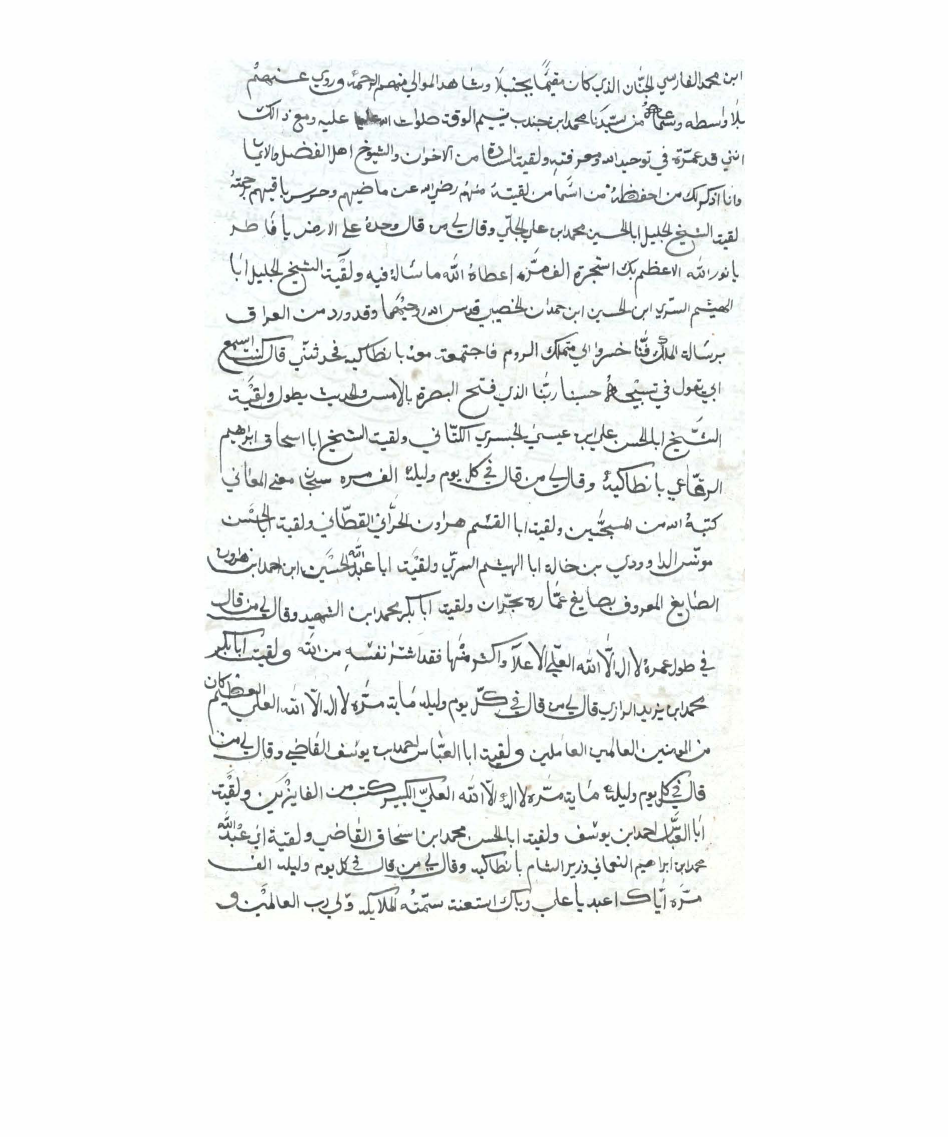 ابن محمد الفارسي الجنان الذي كان مقيمًا بجنبلا وشاهد الموالي منهم الرحمة وروي عنهم
بلا واسطه وسماعه من سيدنا محمد ابن جندب يتيم الوقت صلوات الله عليه ومع ذالك
انني قد عمرة في توحيد الله ومعرفته ولقيت السادة من الاخوان والشيوخ اهل الفضل والايمان
وانا اذكر لك من احفظه من اسما من لقيته منهم رضي الله عن ماضيهم وحرس باقيهم
لقيت الشيخ الجليل ابا الحسين محمد بن علي الجلي وقال لي من قال وحده على الارض يا فاطر
يا نور الله الاعظم بك استجرة الف مرّه اعطاه الله ما سأله فيه ولقيت الشيخ الجليل ابا
الهيثم السري ابن الحسين ابن حمدان الخصيبي قدس الله روحيهما وقد ورد من العراق
برسالة الملك فنّا خسروا الي متملك الروم فاجتمعة معه بانطاكيه فحدثني قال كنت اسمع
ابي يقول في تسبيحه حسبنا ربّنا الذي فتح البصرة بالامس والحديث يطول ولقيت
الشّيخ ابا الحسن علي ابن عيسي الجسري الكتاني ولقيت الشيخ ابا اسحاق ابراهيم
الرقاعي بانطاكيه وقال لي من قال في كل يوم وليلة الف مره سبحان معني المعاني
كتبه الله من المسبحين ولقيت ابا القسم هرون الحراني القطاني ولقيت ابا الحسن
مونس الداوودي بن خالة ابا الهيثم السري ولقيت ابا عبدالله الحسين ابن احمد ابن هارون
الصايغ المعروف بصايغ عمّاره بحران ولقيت ابا بكر محمد ابن الشهيد وقال لي من قال
في طول عمره لا اله الّا الله العلي الاعلا واكثر منها فقد اشترا نفسه من الله ولقيت ابا بكر
محمد ابن يزيد الرازي قال لي من قال في كل يوم وليله ماية مرّه لا اله الّا الله العلي العظيم كان
من المومنين العالمين العاملين ولقيت ابا العباس احمد بن يوسف القاضي وقال لي من
قال في كل يوم وليلة ماية مرّه لا اله الّا الله العليّ الكبير كتب من الفايزين ولقيت
ابا العباس احمد بن يوسف ولقيت ابا الحسن محمد ابن اسحاق القاضي ولقية ابي عبدالله
محمد ابن ابراهيم النعماني وزير الشام بانطاكيه وقال لي من قال في كل يوم وليله الف
مرّه ايّاك اعبد يا علي وياك استعنت سمّته الملايكه ولي رب العالمين و